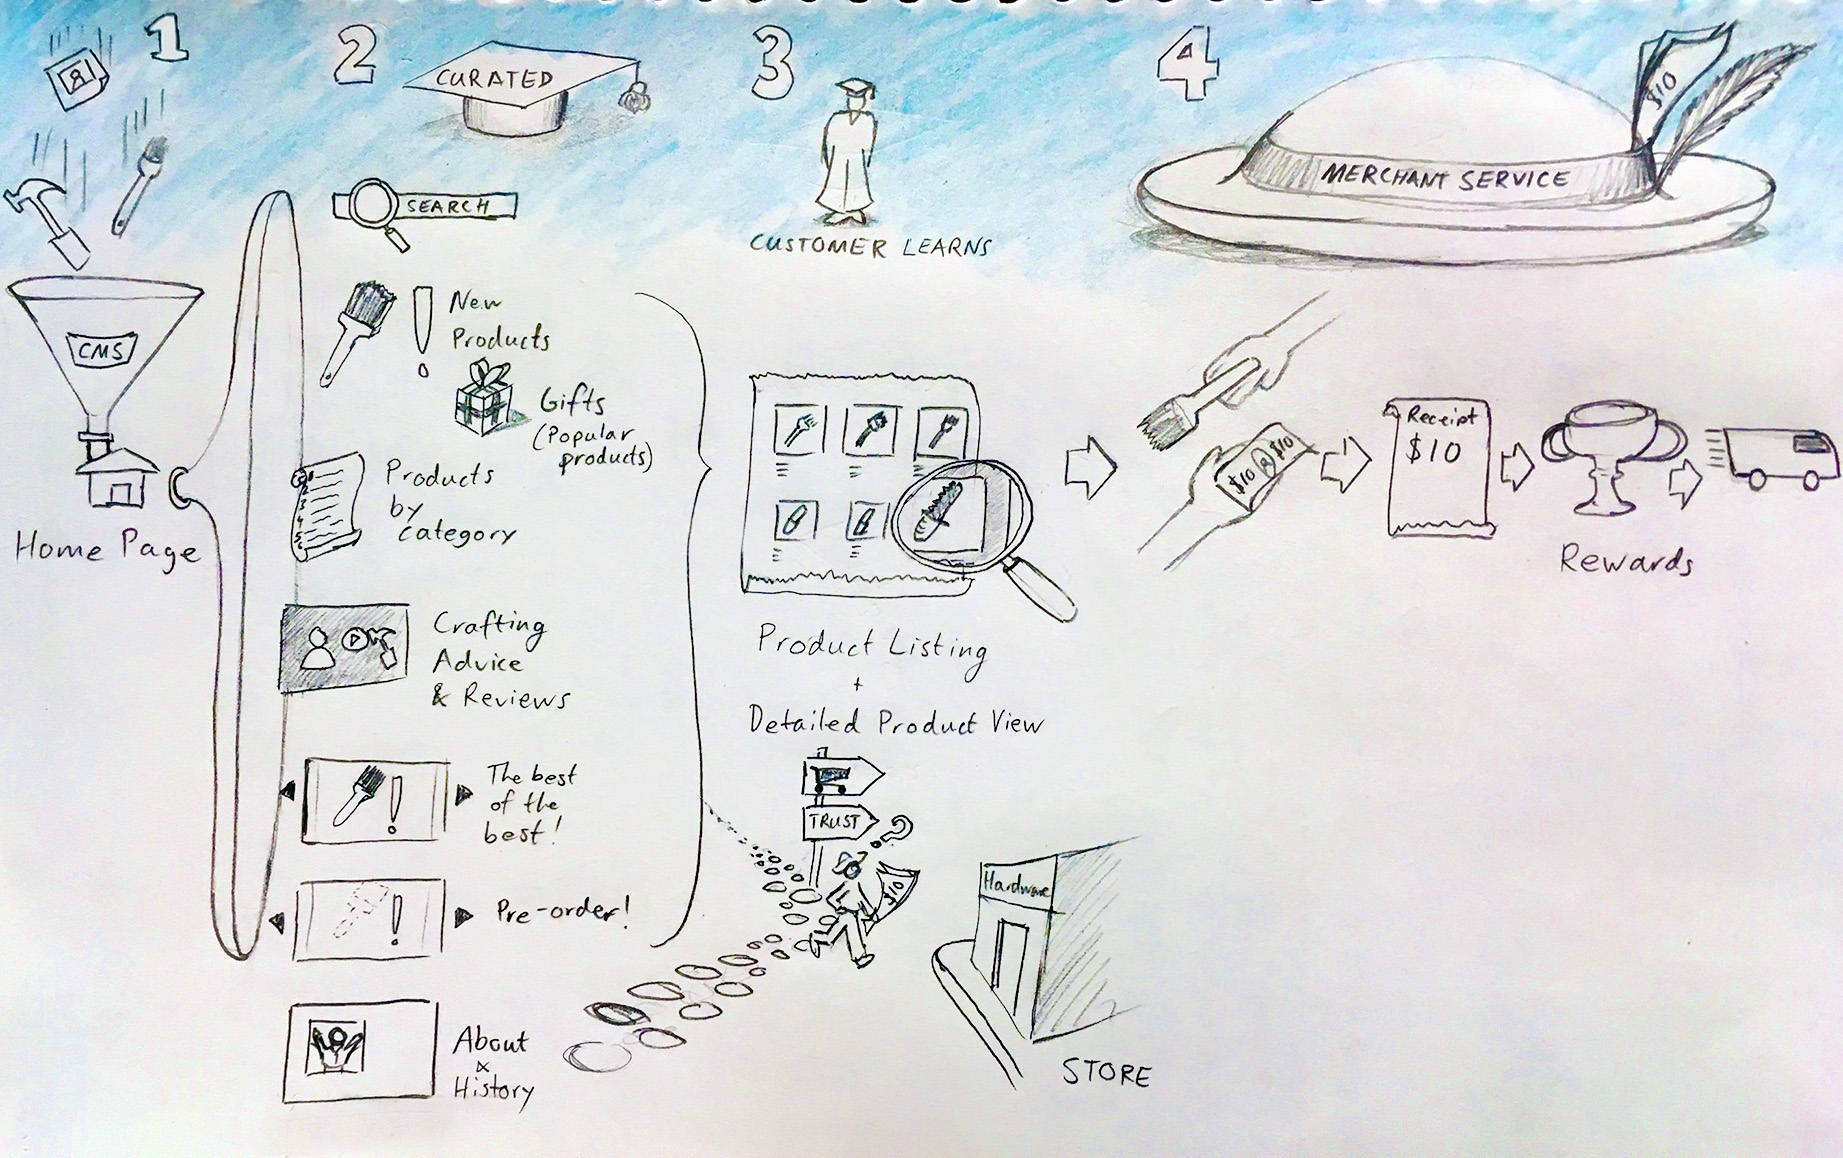 1
2
3
4
CURATED
$10
MERCHANT SERVICE
SEARCH
CUSTOMER LEARNS
CMS
Home Page
New
Products
Gifts
(Popular
products)
Products
by
category
Crafting
Advice
& Reviews
The best
of the
best!
Pre-order!
About
&
History
Product Listing
+
Detailed Product View
TRUST
?
$10
Hardware
STORE
$10
$10
Receipt
$10
Rewards